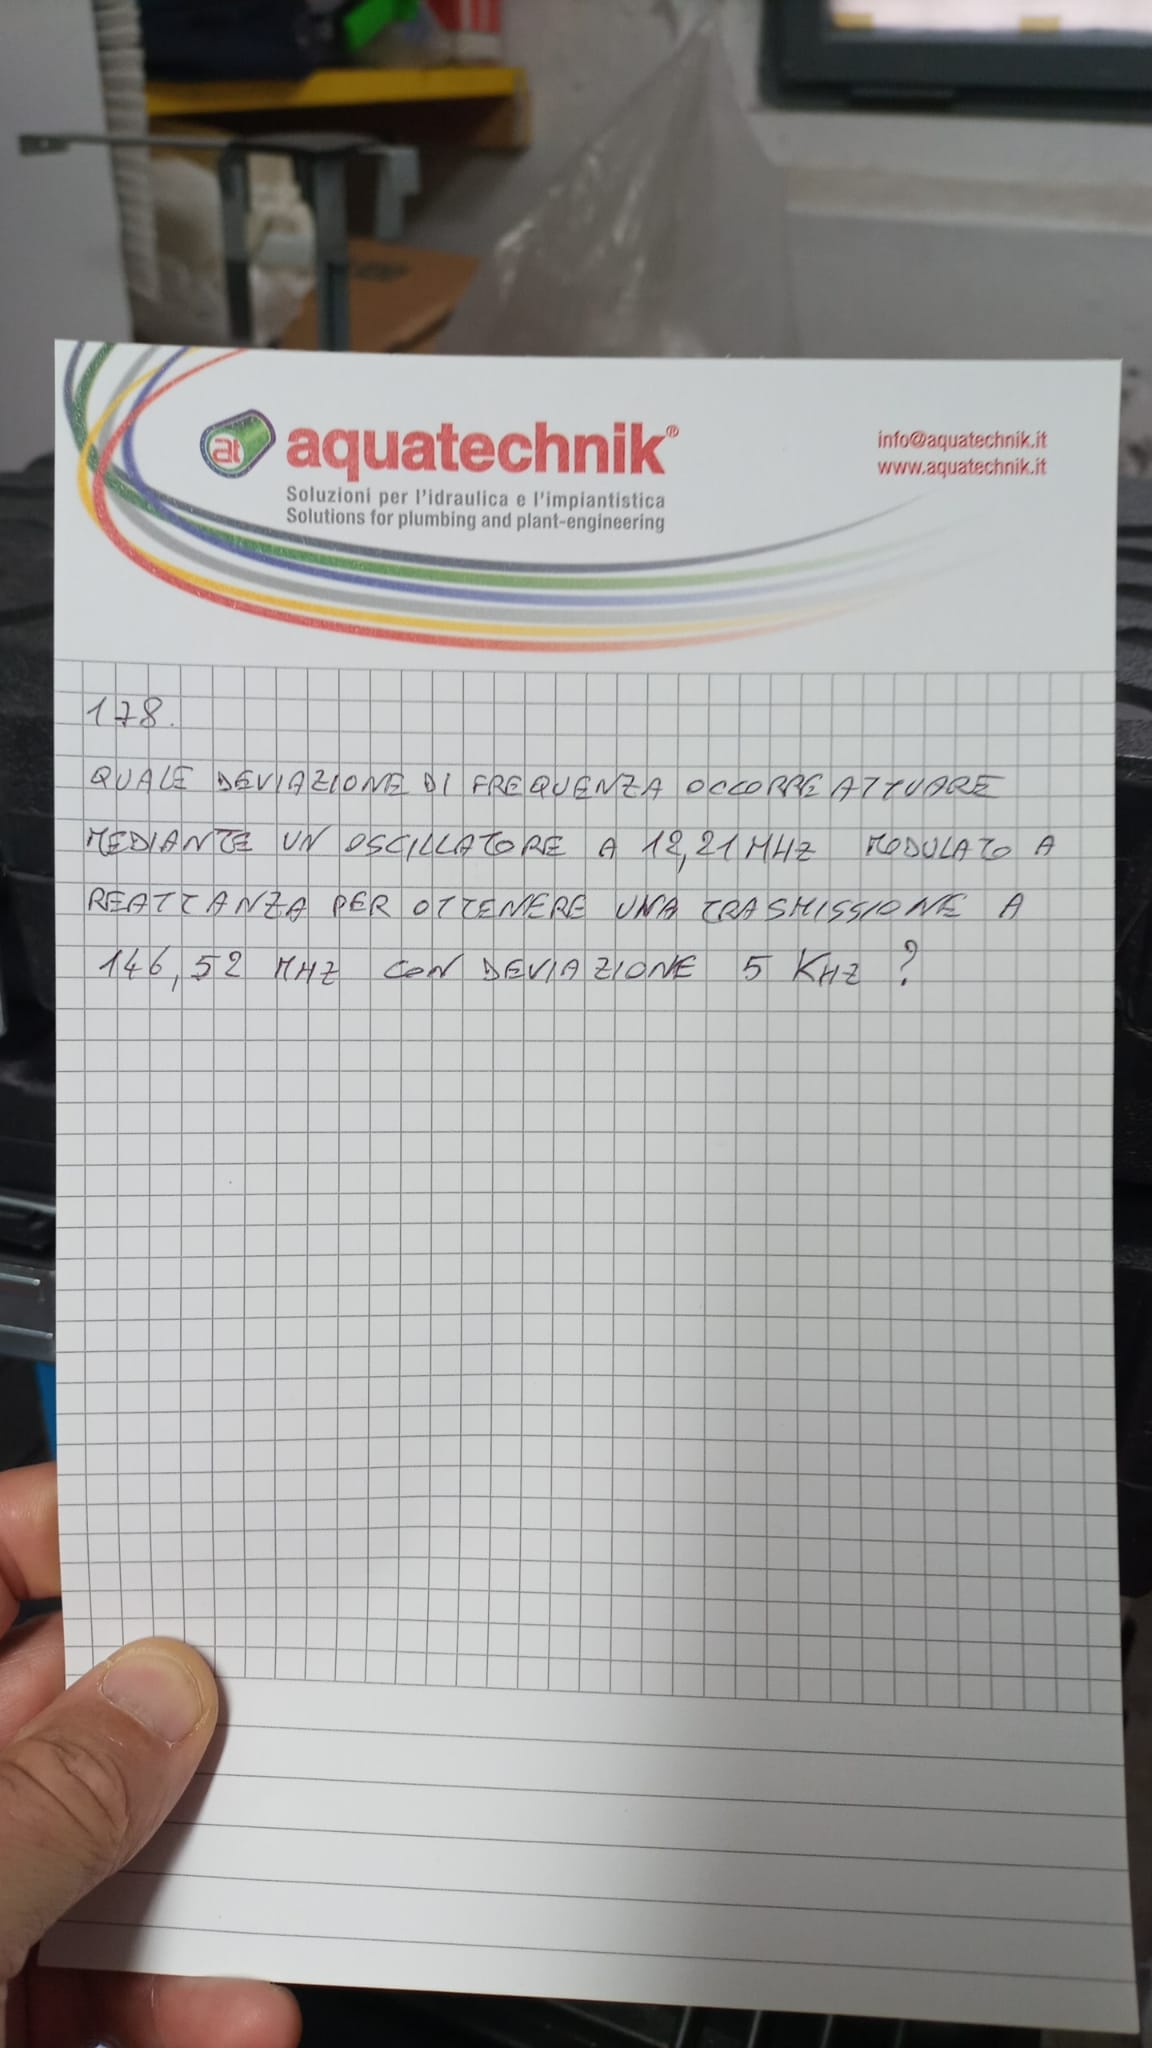 at aquatechnik®
Soluzioni per l'idraulica e l'impiantistica
Solutions for plumbing and plant-engineering
info@aquatechnik.it
www.aquatechnik.it
178.
QUALE DEVIAZIONE DI FREQUENZA OCCORRE ATTUARE
MEDIANTE UN OSCILLATORE A 12,21 MHZ MODULATO A
REATTANZA PER OTTENERE UNA TRASMISSIONE A
146,52 MHZ CON DEVIAZIONE 5 KHZ ?